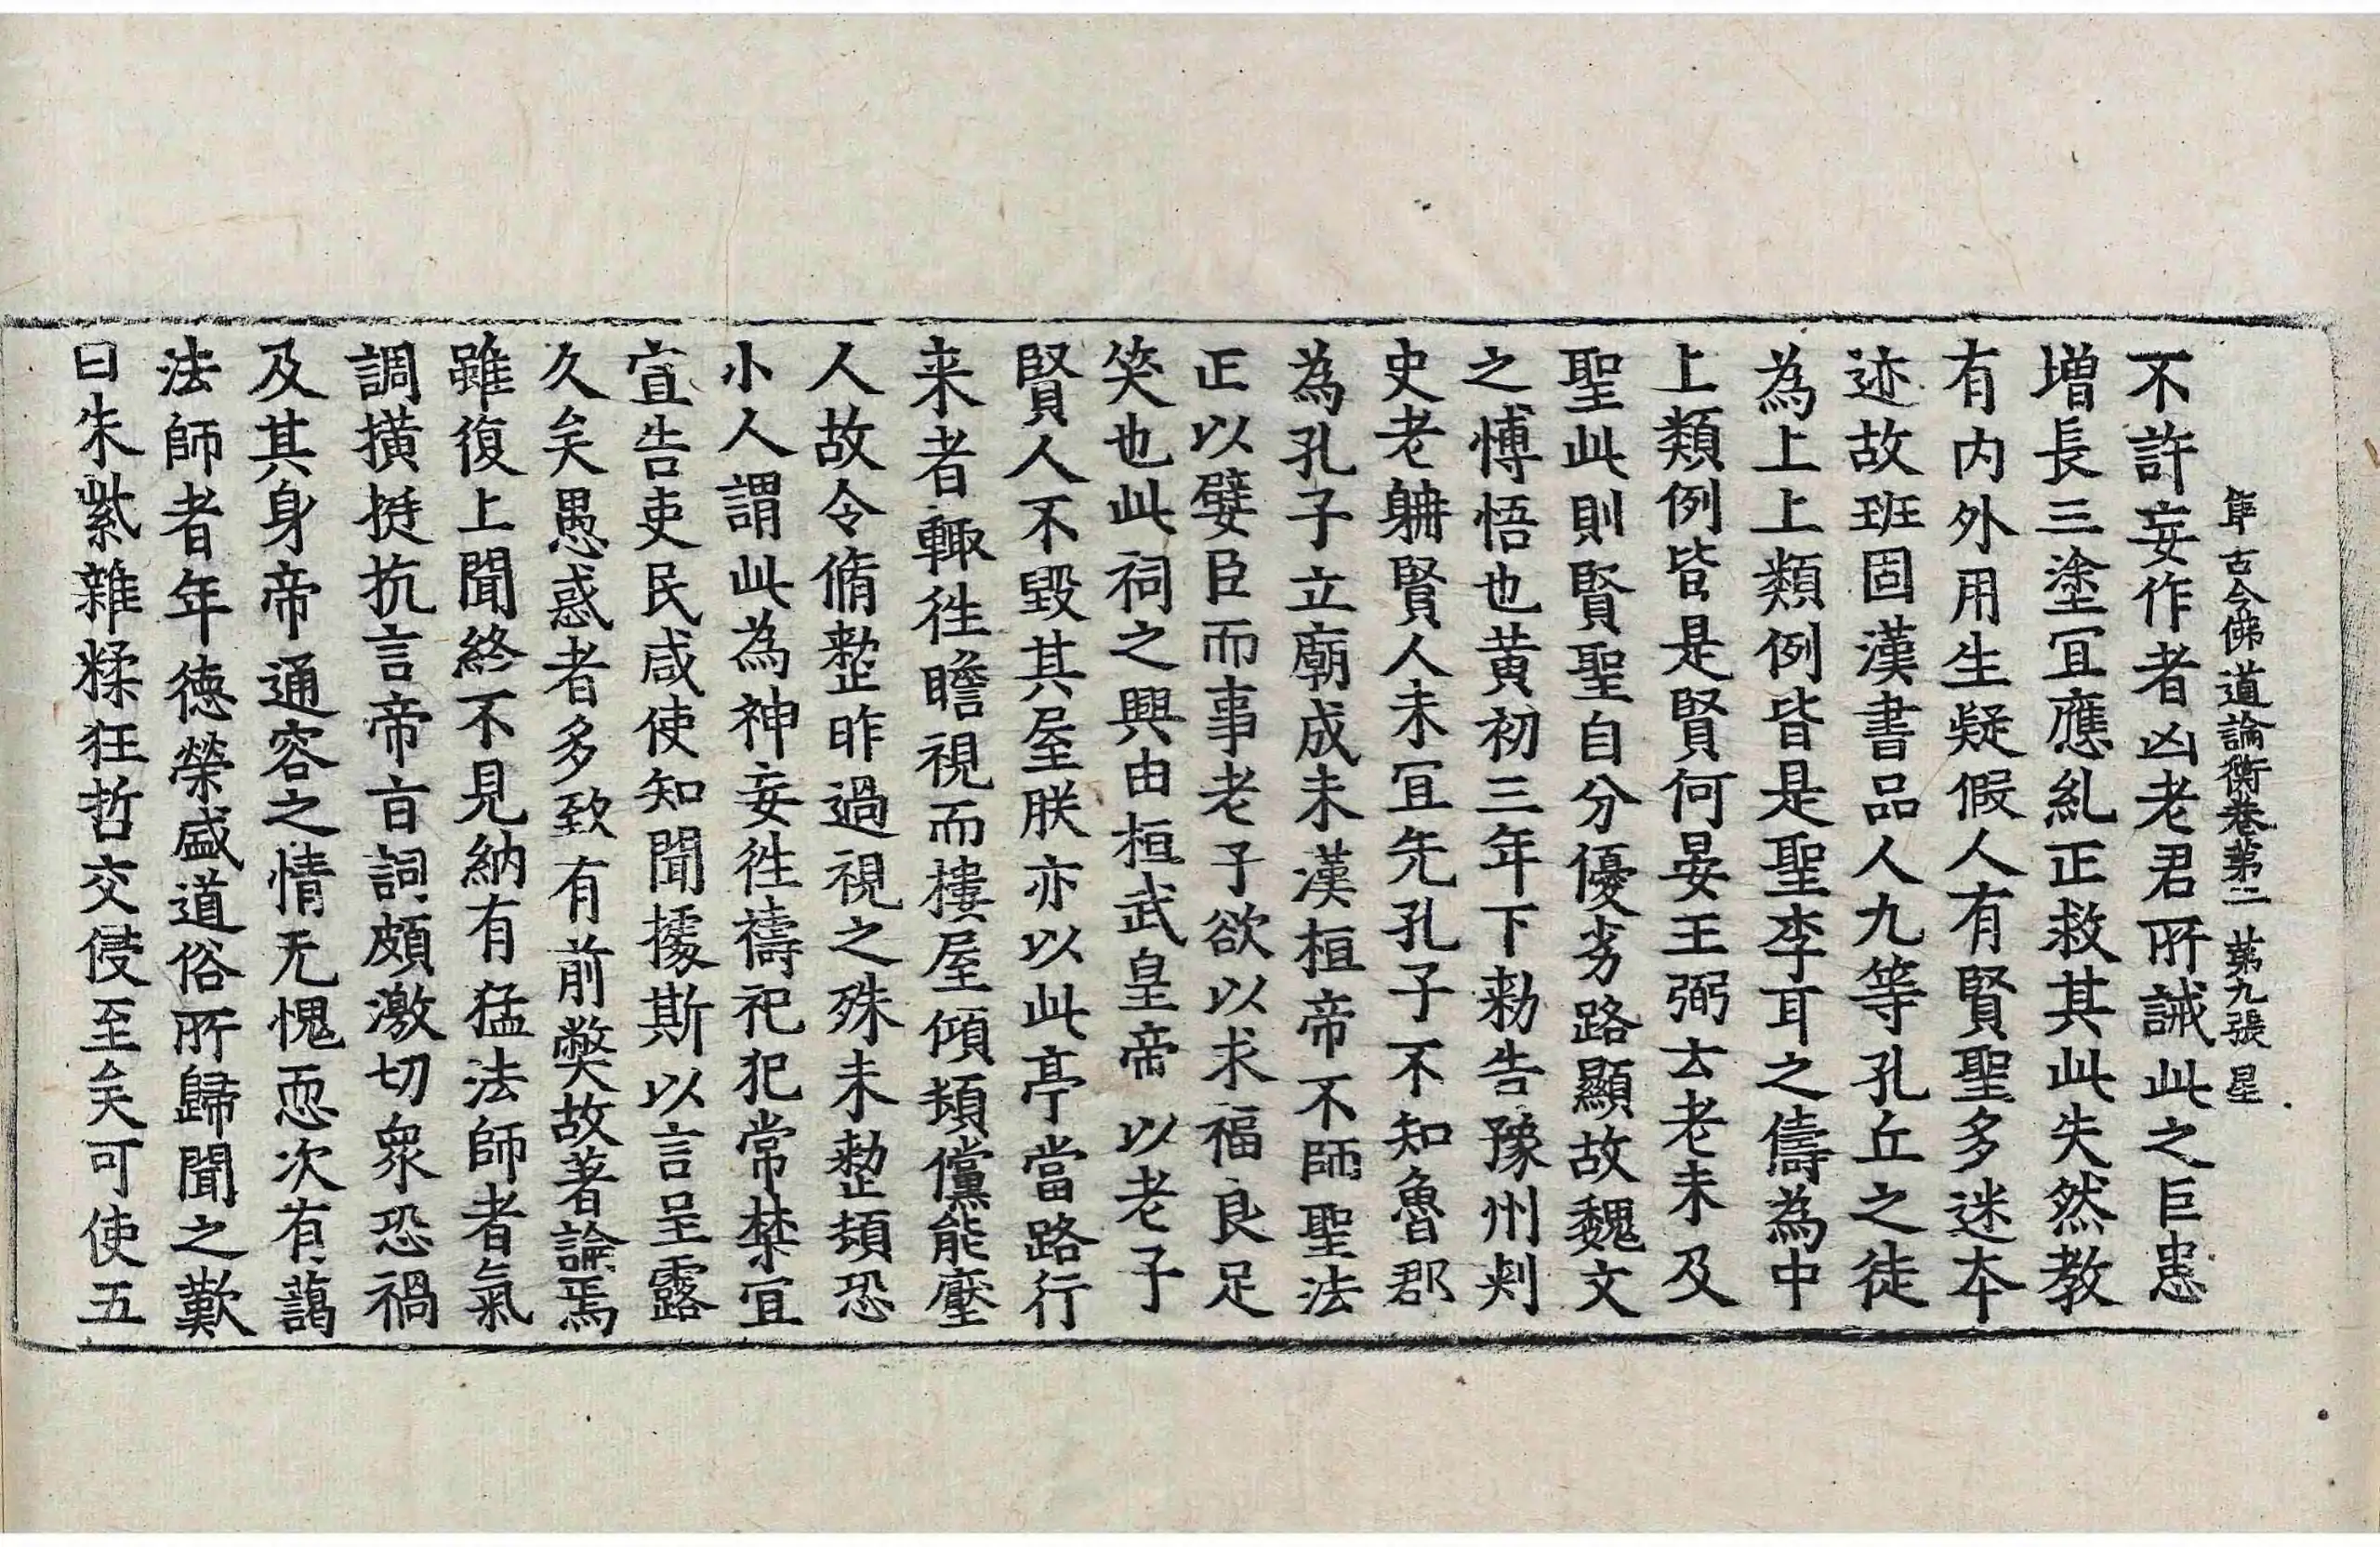 集古今佛道論衡卷第二 第九張 星
不許妄作者凶老君所誡此之巨患
增長三塗冝應糺正救其此失然教
有内外用生疑假人有賢聖多迷本
迹故班固漢書品人九等孔丘之徒
為上上類例皆是聖李耳之儔為中
上類例皆是賢何晏王弼云老未及
聖此則賢聖自分優劣路顯故魏文
之愽悟也黃初三年下勑告豫州刾
史老耼賢人未冝先孔子不知魯郡
為孔子立廟成未漢桓帝不師聖法
正以嬖臣而事老子欲以求福良足
笑也此祠之興由桓武皇帝以老子
賢人不毀其屋朕亦以此亭當路行
来者輙徃瞻視而樓屋傾頽儻能壓
人故令脩整昨過視之殊未整頓恐
小人謂此為神妄徃禱祀犯常禁冝
宣告吏民咸使知聞據斯以言呈露
久矣愚惑者多致有前獘故著論焉
雖復上聞終不見納有猛法師者氣
調撗挺抗言帝旨詞頗激切衆恐禍
及其身帝通容之情无愧恧次有藹
法師者年徳榮盛道俗所歸聞之歎
曰朱紫雜糅狂哲交侵至矣可使五